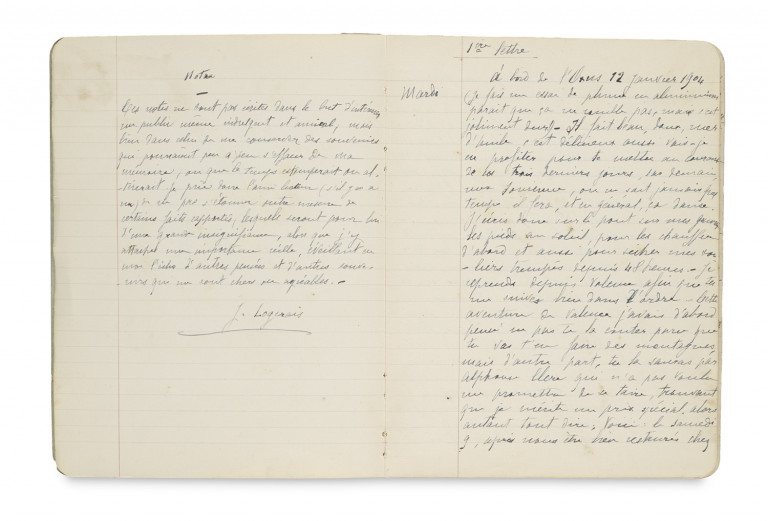 Notes
Ces notes ne sont pas écrites dans le but d'intéresser
un public même indulgent et amical, mais
bien dans celui de me conserver des souvenirs
qui pourraient peu à peu s'effacer de ma
mémoire, ou que le temps
je prie donc l'ami lecteur, s'il y en a
un, de ne pas s'étonner outre mesure de
certains faits rapportés, lesquels seront pour lui
d'une grande insignifiance, alors que j'y
attache une importance réelle, éveillant en
moi l'écho d'autres pensées et d'autres souve-
nirs qui me sont chers ou agréables. —
J. Legerais
1ère lettre
Mardi
À bord de l' 12 janvier 1904
(Je fais un essai de plume en aluminium
paraît que ça ne rouille pas, mais c'est
joliment dur) — Il fait beau, donc, mer
d'huile, c'est délicieux aussi vais-je
en profiter pour te mettre au courant
de ces trois derniers jours, car demain,
nous on ne sait jamais quel
temps il fera, et en général, ça danse.
J'écris donc sur le pont sur mes genoux
les pieds au soleil, pour les chauffer
d'abord et aussi pour sécher mes sou-
- liers trempés depuis 48 heures. — Je
reprends depuis Valence afin que tu
me suives bien dans l'ordre — Cette
aventure de Valence j'avais d'abord
pensé ne pas te la conter parce que
tu vas t'en faire des montagnes,
mais d'autre part, tu la sauras par
Alphonse que n'a pas voulu
me promettre de se taire, trouvant
que je mérite un prix spécial, alors
autant tout dire; Voici: le samedi
9, après nous être bien restaurés chez